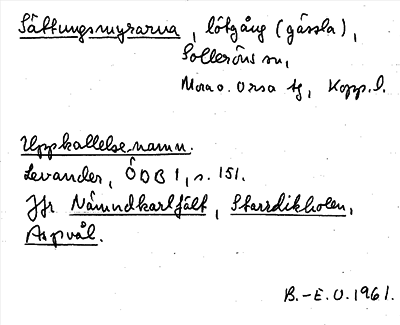 Sättungsmyrarna, lötgång (gässla),
Solleröns sn,
Mora o. Orsa tg, Kopp. l.
Uppkallelsenamn.
Levander, ÖDB 1, s. 151.
Jfr Nämndkarlfält, Starrdikholen,
Aspvål.
B.-E. O. 1961.